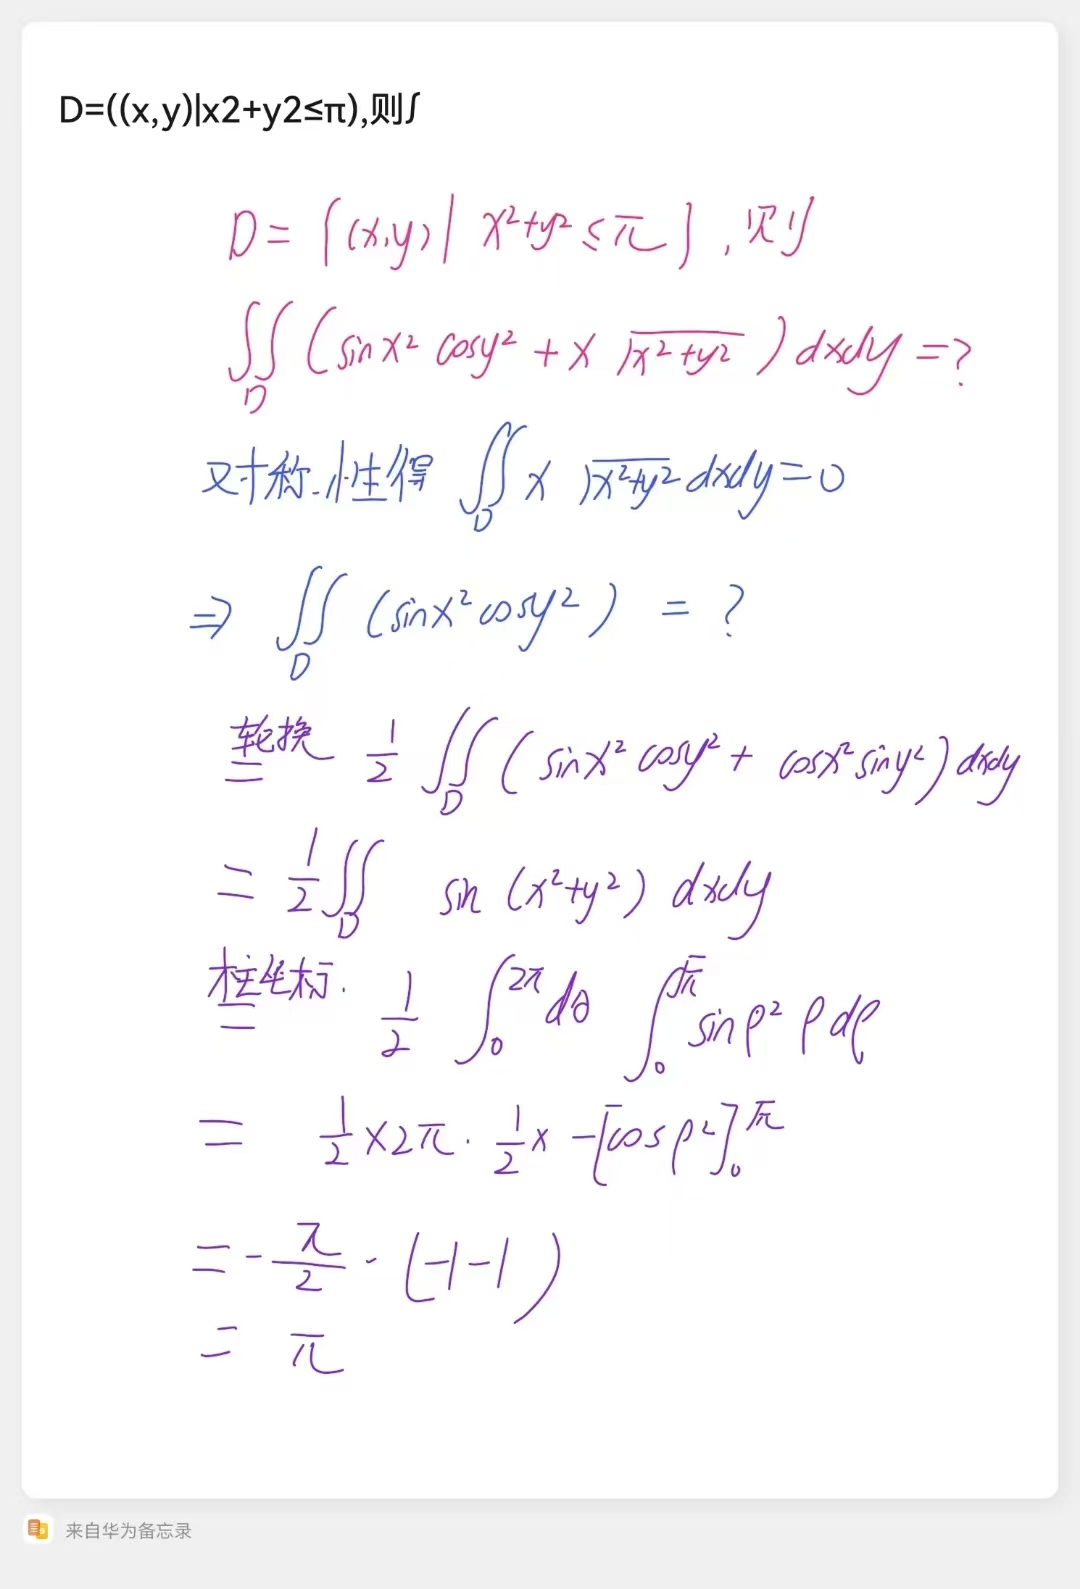 D=((x,y)|x2+y2≤π),则∫
D = {(x,y) | x²+y² ≤ π}, 则
∬_D (sinx² cosy² + x √x²+y²) dxdy = ?
对称性得 ∬_D x √x²+y² dxdy = 0
⇒ ∬_D (sinx² cosy²) = ?
轮换 = 1/2 ∬_D (sinx² cosy² + cosx² siny²) dxdy
= 1/2 ∬_D sin (x²+y²) dxdy
柱坐标. = 1/2 ∫_0^2π dθ ∫_0^√π sinρ² ρ dρ
= 1/2 × 2π · 1/2 × -[cosρ²]_0^√π
= - π/2 · (-1-1)
= π
来自华为备忘录